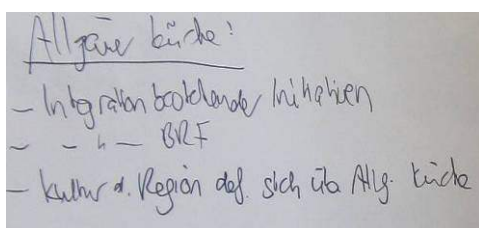 Allgäuer küche:
- Integration bestehender Initiativen
- - " - BRF
- Kultur d. Region def. sich über Allg. Küche